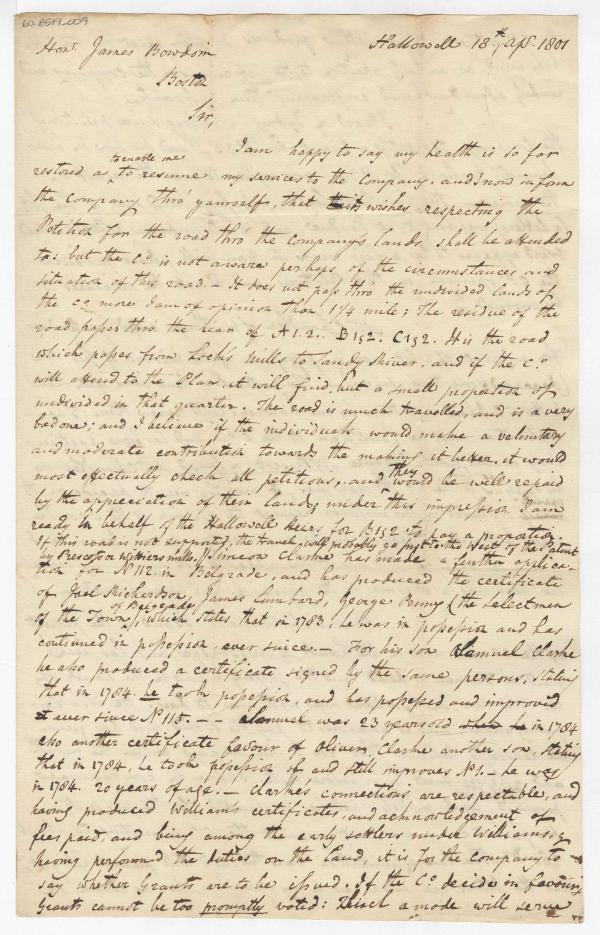 60-B5F1-009
Hon.r James Bowdoin Hallowell 18.th Ap.l 1801
Boston
Sir,
I am happy to say my health is so far
to enable me
restored as to resume my services to the Company. and I now inform
the Company thro' yourself, that their wishes respecting the
Petition for the road thro' the Company's lands shall be attended
to: but the C.o is not aware perhaps of the circumstances and
situation of this road. – It does not pass thro' the undivided lands of
the C.o more I am of opinion than 1 1/4 mile; The residue of the
road passes thro' the rear of A 1.2.. B 1 & 2. C 1 & 2. It is the road
which passes from Loch's Mills to Sandy River, and if the C.o
will attend to the Plan, it will find, but a small propotion of
undivided in that quarter. The road is much travelled, and is a very
bad one; and I believe if the individuals would make a voluntary
and moderate contribution towards the making it better, it would
they
most effectually check all petitions, and would be well repaid
by the appreciation of their lands; under this impression I am
ready in behalf of the Hallowell Heirs for B 1 & 2 to pay a propotion
If this road is not supported, the travel, will probably go just to the West of the Patent
by Prescot or Wittiers mills. // Simeon Clarke has made a further applica-
tion for N.o 112. in Belgrade, and has produced the certificate
of Joel Richardson, James Lumbard, George Penny (the Selectmen
of Belgrade
of the Town), which states that in 1783, he was in possession and has
continued in possession, ever since. – For his son Samuel Clarke
he also produced a certificate signed by the same persons, stating
that in 1784. he took possession, and has possessed and improved
it ever since N.o 115. – – Samuel was 23 years old when he in 1784
also another certificate favour of Oliver Clarke another son, stating
that in 1784, he took possession of and still improves N.o 1. – he was
in 1784. 20 years of age. – Clarke's connections are respectable, and
having produced William's certificates, and acknowledgement of
fees paid, and being among the early settlers under Williams, &
having performed the duties on the Land, it is for the Company to
say whether Grants are to be issued. If the C.o decide in favour,
Grants cannot be too promptly voted: Such a mode will serve